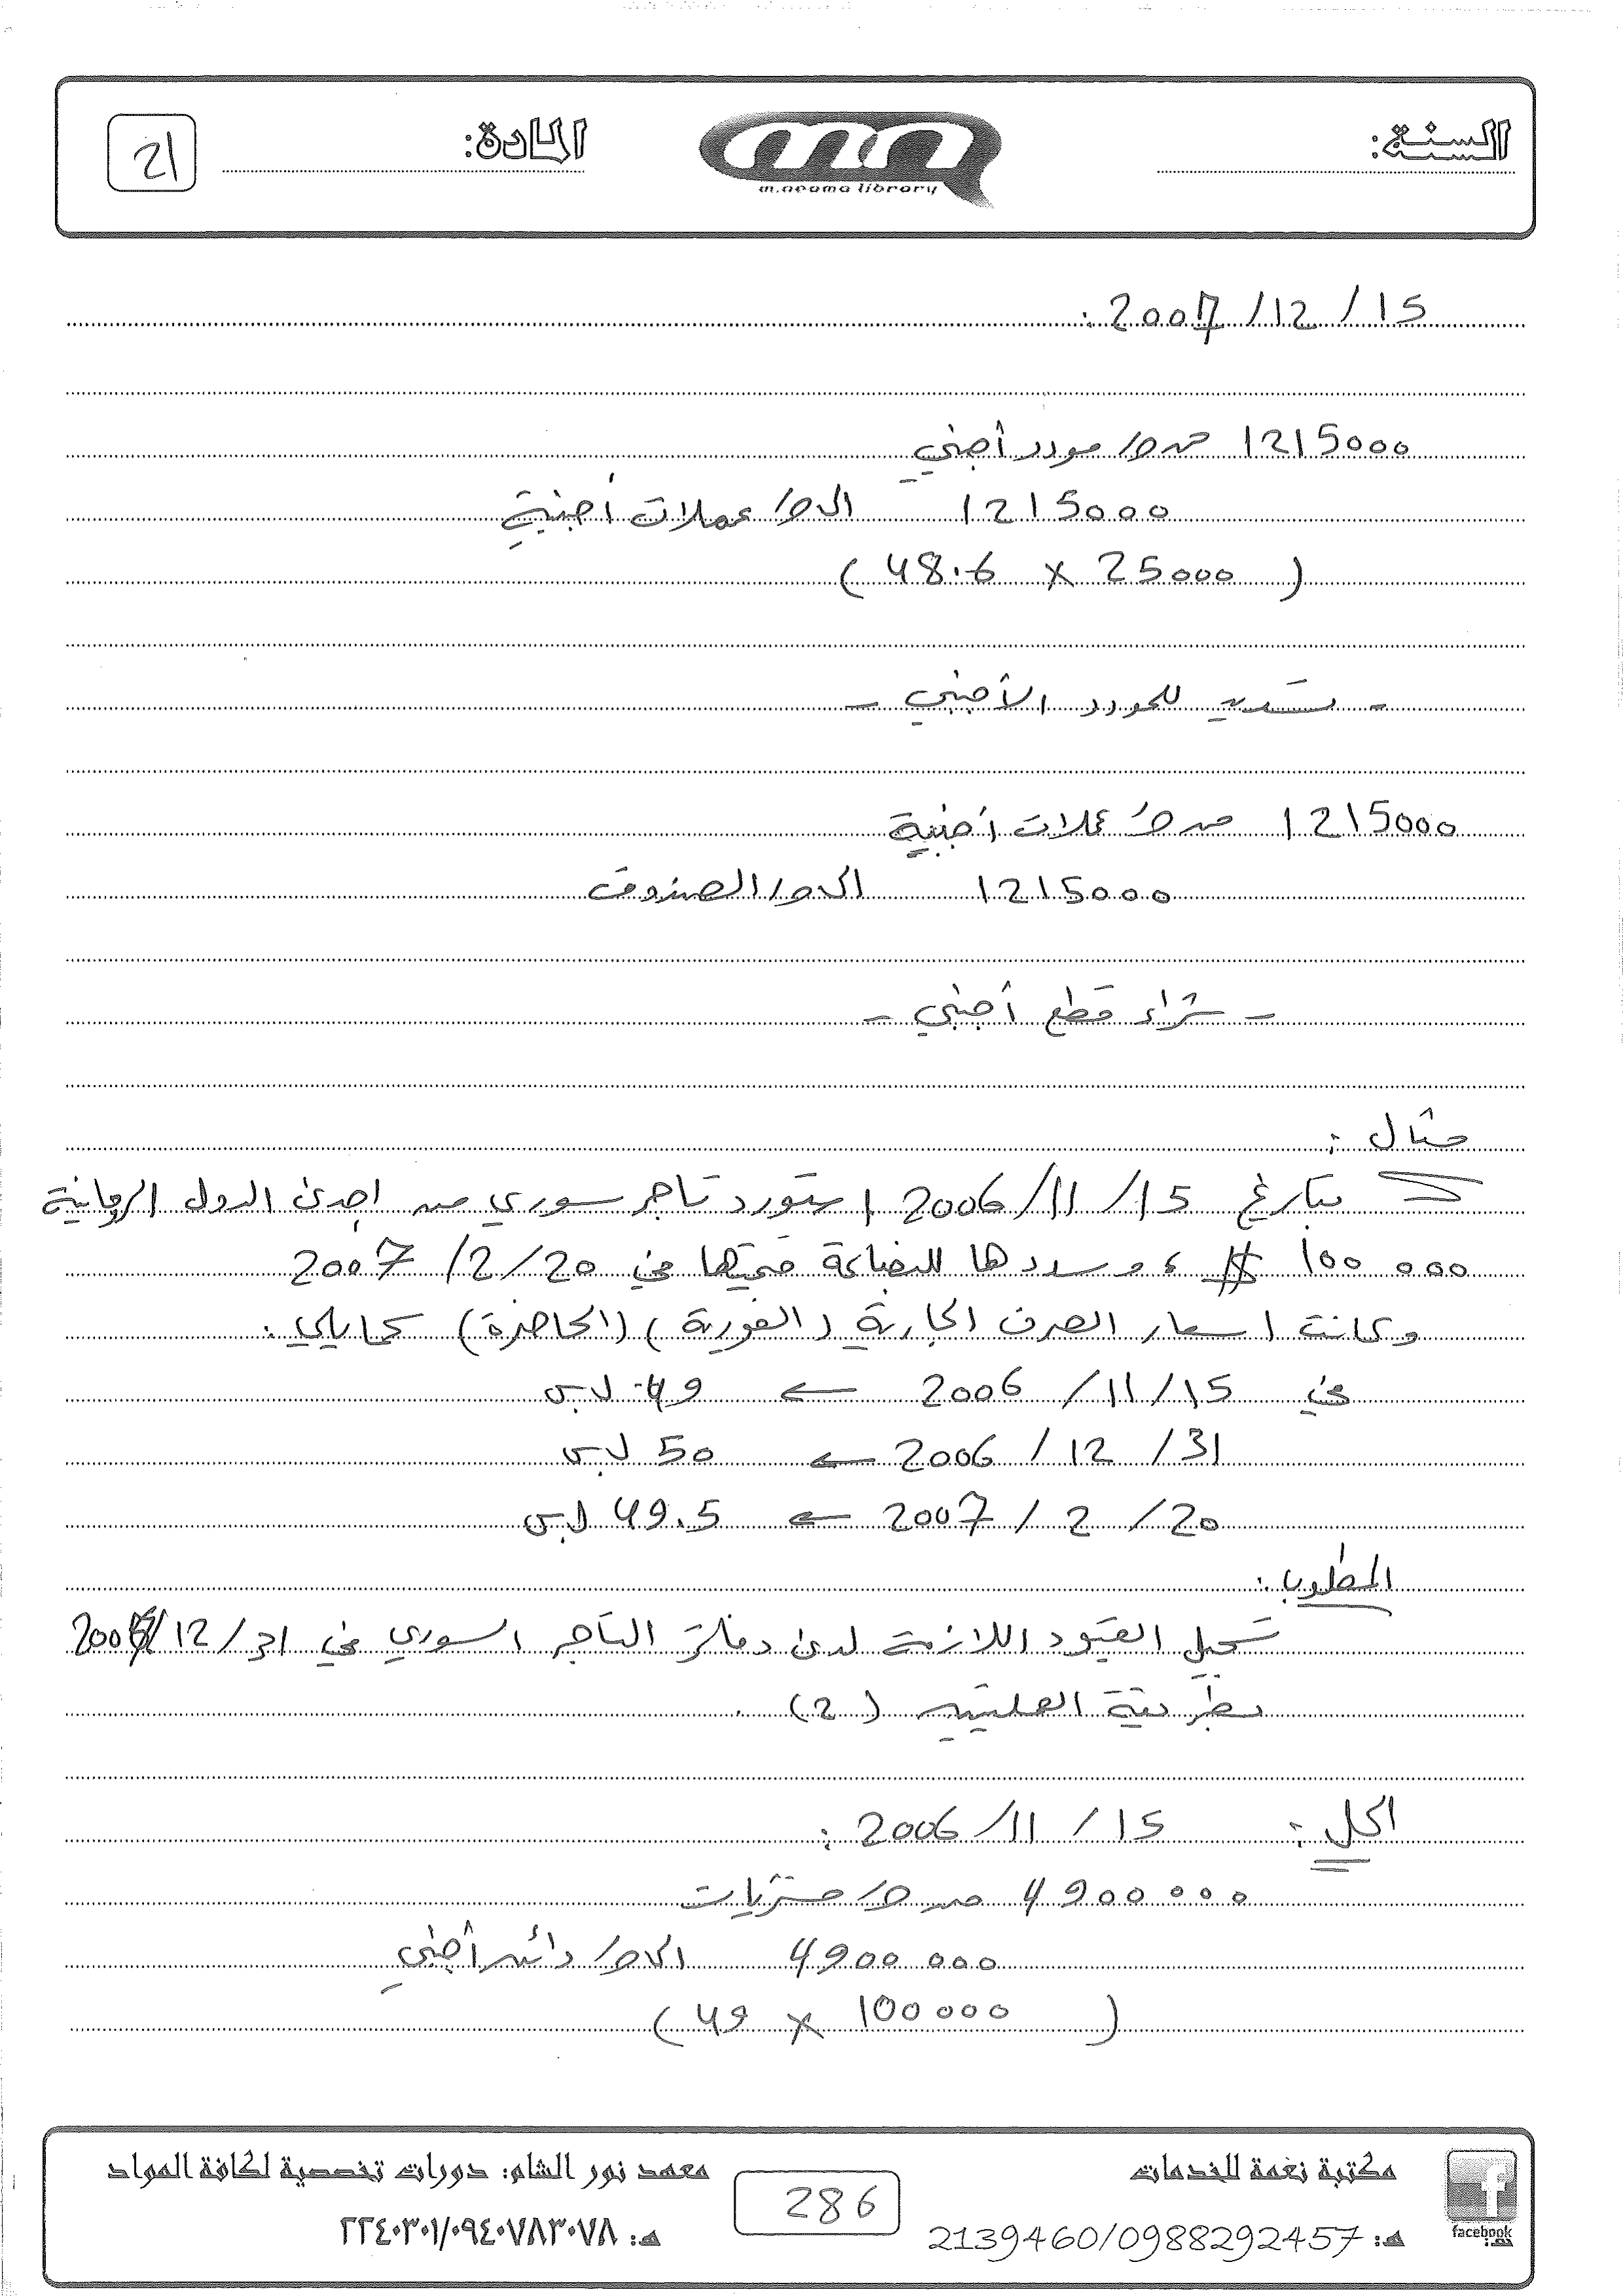 السنة:
m.neama library
المادة:
21
15 / 12 / 2007 :
1215000 من ح/ مورد أجنبي
1215000 الى ح/ عملات أجنبية
( 25000 × 48.6 )
- تسديد للمورد الأجنبي -
1215000 من ح/ عملات أجنبية
1215000 الى ح/ الصندوق
- شراء قطع أجنبي -
مثال :
بتاريخ 15 / 11 / 2006 استورد تاجر سوري من إحدى الدول
100 000 $ ، وسددها للبضاعة قيمتها في 20 / 2 / 2007
وكانت اسعار الصرف الجارية (الفورية) (الحاضرة) كمايلي :
في 15 / 11 / 2006 ← 49 ل.س
31 / 12 / 2006 ← 50 ل.س
20 / 2 / 2007 ← 49.5 ل.س
المطلوب :
تسجيل القيود اللازمة لدى دفاتر التاجر السوري في 31 / 12
بطريقة العمليتين (2) .
الحل : 15 / 11 / 2006 :
4900 000 من ح/ مشتريات
4900 000 الى ح/ دائن أجنبي
( 100000 × 49 )
facebook
مكتبة نغمة للخدمات
هـ: 2139460/0988292457
286
معهد نور الشام: دورات تخصصية لكافة المواد
هـ: ٢٢٤٠٣٠١/٠٩٤٠٧٨٣٠٧٨